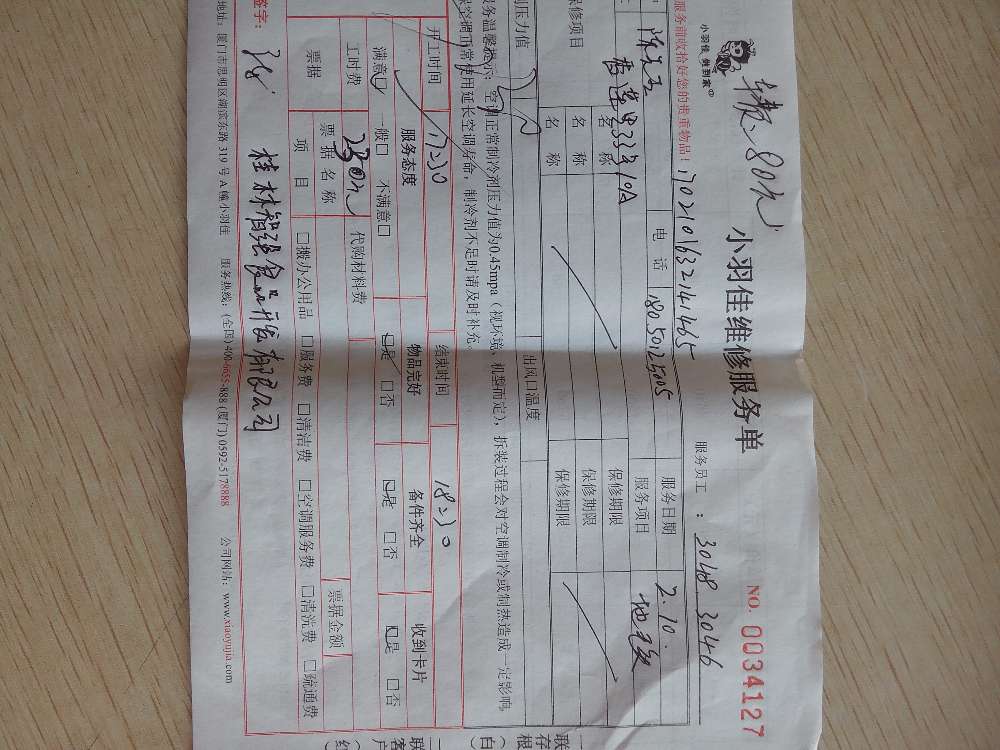 小羽佳 做到家
80元
小羽佳维修服务单
NO. 0034127
服务前收拾好您的贵重物品!
1702101632141465
服务员工：3048 3046
电话
18050125005
服务日期
2.10
服务项目
保修项目
名称
保修期限
名称
保修期限
名称
保修期限
压力值
出风口温度
服务温馨提示：空调正常制冷剂压力值为0.45mpa（视环境、机型而定），拆装过程会对空调制冷或制热造成一定影响
空调正常使用延长空调寿命，制冷剂不足时请及时补充。
开工时间
17:30
结束时间
18:30
服务态度
物品完好
备件齐全
收到卡片
满意□ 一般□ 不满意□
□是 □否
□是 □否
□是 □否
工时费
230元
代购材料费
票据
票据名称
票据金额
项目
□搬办公用品 □服务费 □清洁费 □空调服务费 □清洗费 □疏通费
签字：
桂林智强食品开发有限公司
地址：厦门市思明区湖滨东路 319 号 A 幢小羽佳 服务热线：(全国) 400-6655-888 (厦门) 0592-5178888 公司网站：www.xiaoyujia.com